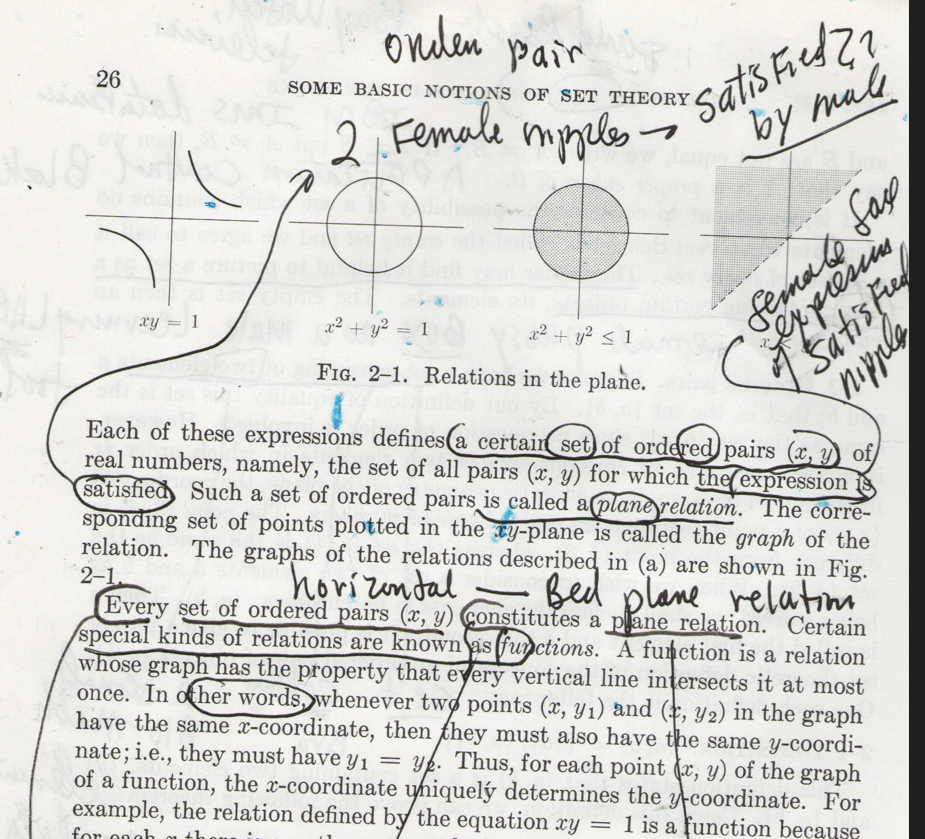 Orden pair
26
SOME BASIC NOTIONS OF SET THEORY
satisfied??
by male
2 Female nipples →
female say
expression
satisfied
nipples
xy = 1
x² + y² = 1
x² + y² ≤ 1
x
FIG. 2–1. Relations in the plane.
Each of these expressions defines a certain set of ordered pairs (x, y) of
real numbers, namely, the set of all pairs (x, y) for which the expression is
satisfied. Such a set of ordered pairs is called a plane relation. The corre-
sponding set of points plotted in the xy-plane is called the graph of the
relation. The graphs of the relations described in (a) are shown in Fig.
2–1.
Horizontal — Bed plane relation
Every set of ordered pairs (x, y) constitutes a plane relation. Certain
special kinds of relations are known as functions. A function is a relation
whose graph has the property that every vertical line intersects it at most
once. In other words, whenever two points (x, y₁) and (x, y₂) in the graph
have the same x-coordinate, then they must also have the same y-coordi-
nate; i.e., they must have y₁ = y₂. Thus, for each point (x, y) of the graph
of a function, the x-coordinate uniquely determines the y-coordinate. For
example, the relation defined by the equation xy = 1 is a function because